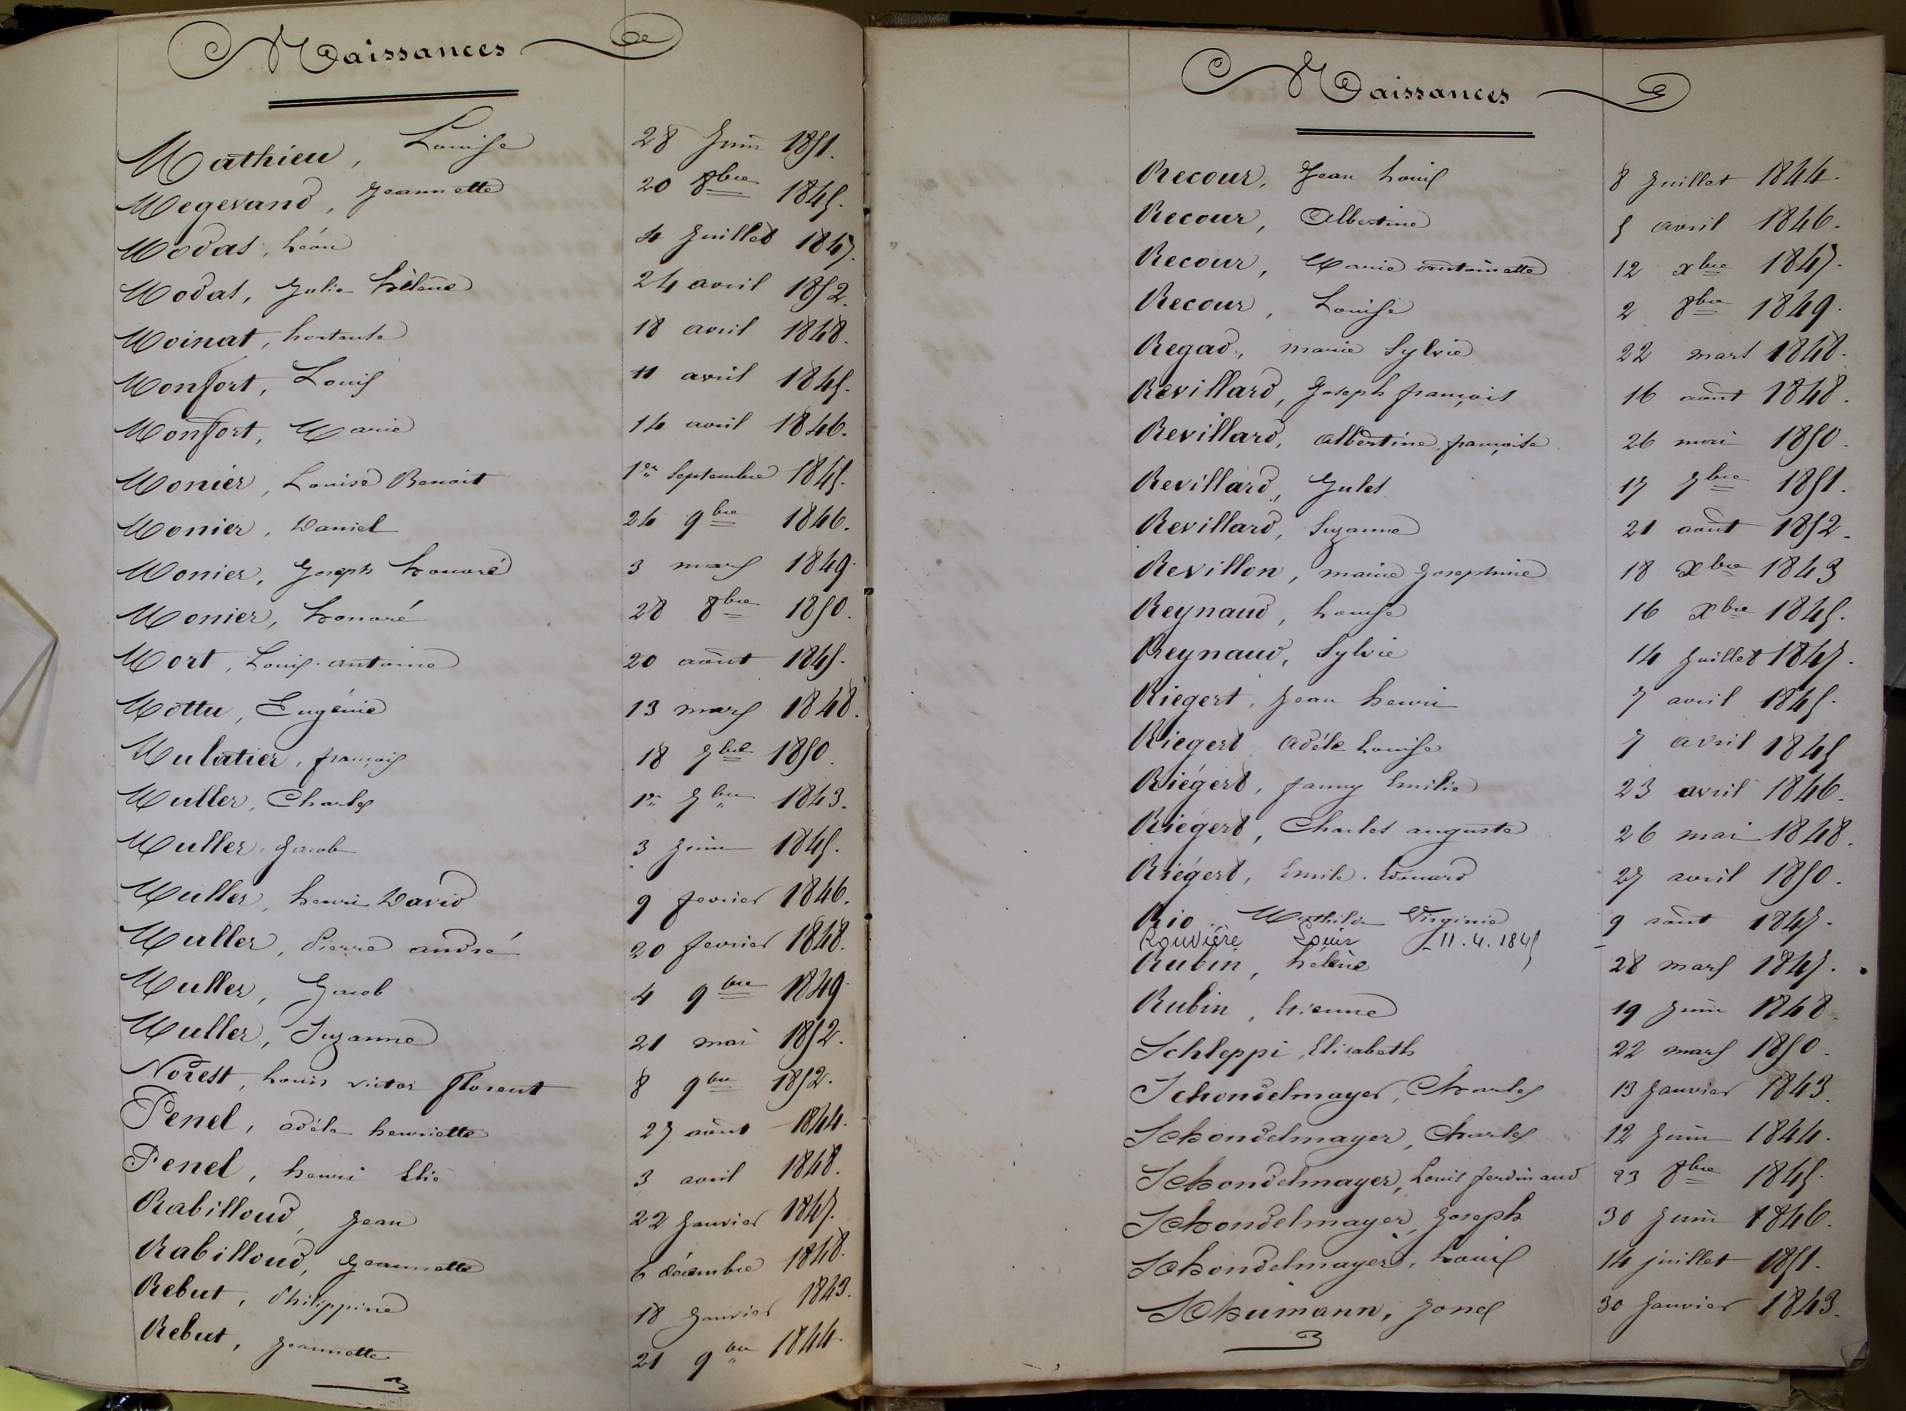 Naissances
Mathieu, Louise 28 Juin 1851.
Megevand, Jeannette 20 8bre 1845.
Modas, Léon 4 Juillet 1847.
Modas, Julie hélène 24 avril 1852.
Moinat, hortense 18 avril 1848.
Monfort, Louis 11 avril 1845.
Monfort, Marie 14 avril 1846.
Monier, Louise Benoit 1er Septembre 1845.
Monier, Daniel 24 9bre 1846.
Monier, Joseph honoré 3 mars 1849.
Monier, honoré 28 8bre 1850.
Mort, Louis antoine 20 août 1845.
Mottu, Eugénie 13 mars 1848.
Mulatier, françois 18 7bre 1850.
Muller, Charles 1er 7bre 1843.
Muller, Jacob 3 Juin 1845.
Muller, henri David 9 fevrier 1846.
Muller, Pierre andré 20 fevrier 1848.
Muller, Jacob 4 9bre 1849.
Muller, Suzanne 21 mai 1852.
Norest, Louis victor florent 8 9bre 1852.
Penel, adèle henriette 27 août 1844.
Penel, henri Elie 3 avril 1848.
Rabilloud, Jean 22 Janvier 1847.
Rabilloud, Jeannette 6 décembre 1848.
Rebut, Philippine 18 Janvier 1843.
Rebut, Jeannette 21 9bre 1844.
Naissances
Recour, Jean Louis 8 Juillet 1844.
Recour, Albertine 5 avril 1846.
Recour, Marie antoinette 12 xbre 1847.
Recour, Louise 2 8bre 1849.
Regad, marie Sylvie 22 mars 1848.
Revillard, Joseph françois 16 août 1848.
Revillard, albertine françoise 26 mai 1850.
Revillard, Jules 17 7bre 1851.
Revillard, Suzanne 21 août 1852.
Revillon, marie Josephine 18 xbre 1843
Reynaud, Louise 16 xbre 1845.
Reynaud, Sylvie 14 Juillet 1847.
Riegert, Jean henri 7 avril 1845.
Riegert, adèle Louise 7 avril 1845
Riégert, fanny Emilie 23 avril 1846.
Riégert, Charles auguste 26 mai 1848.
Riégert, Emile Edouard 27 avril 1850.
Rio, Mathilde Virginie 9 août 1847.
Rouvière Louis 11.4.1845
Rubin, hélène 28 mars 1847.
Rubin, Etienne 19 Juin 1848.
Schleppi, Elisabeth 22 mars 1850.
Schondelmayer, Charles 13 Janvier 1843.
Schondelmayer, Charles 12 Juin 1844.
Schondelmayer, Louis ferdinand 23 8bre 1845.
Schondelmayer, Joseph 30 Juin 1846.
Schondelmayer, Louis 14 juillet 1851.
Schumann, Jones 30 Janvier 1843.